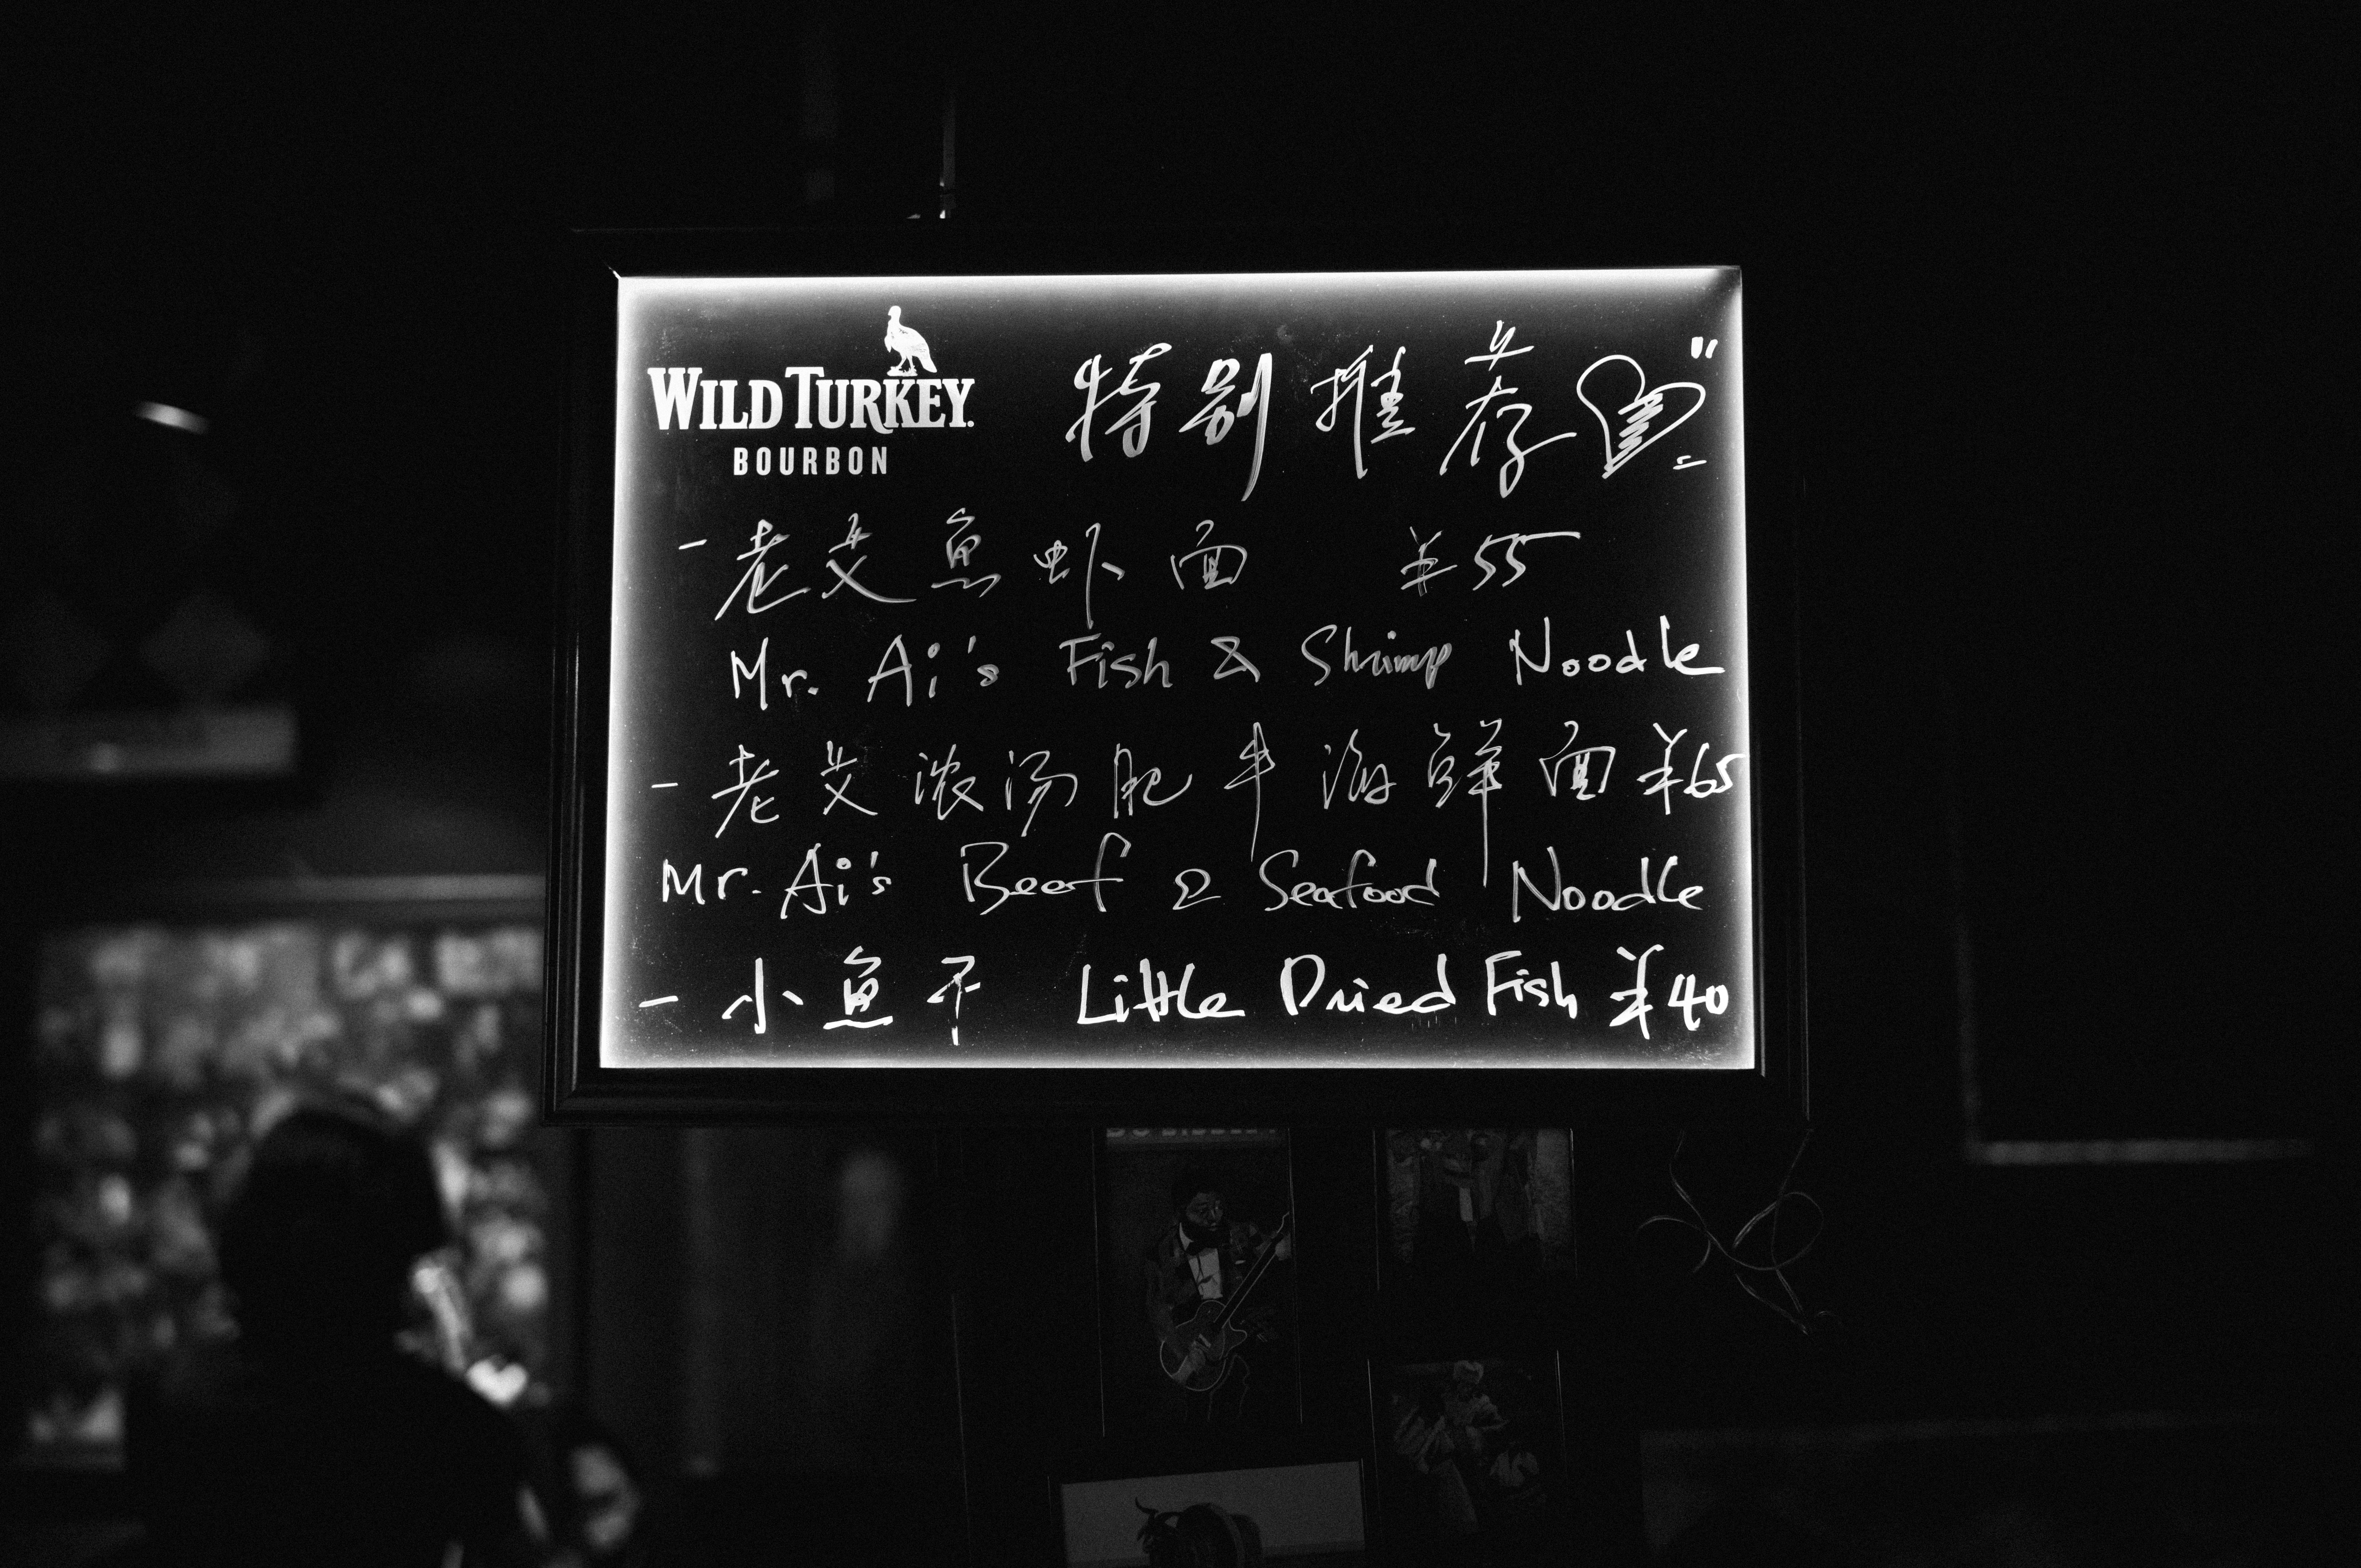 WILD TURKEY.
BOURBON
特别推荐
- 老艾鱼虾面 ¥55
Mr. Ai's Fish & Shrimp Noodle
- 老艾浓汤肥牛海鲜面 ¥65
Mr. Ai's Beef & Seafood Noodle
- 小鱼干 Little Dried Fish ¥40